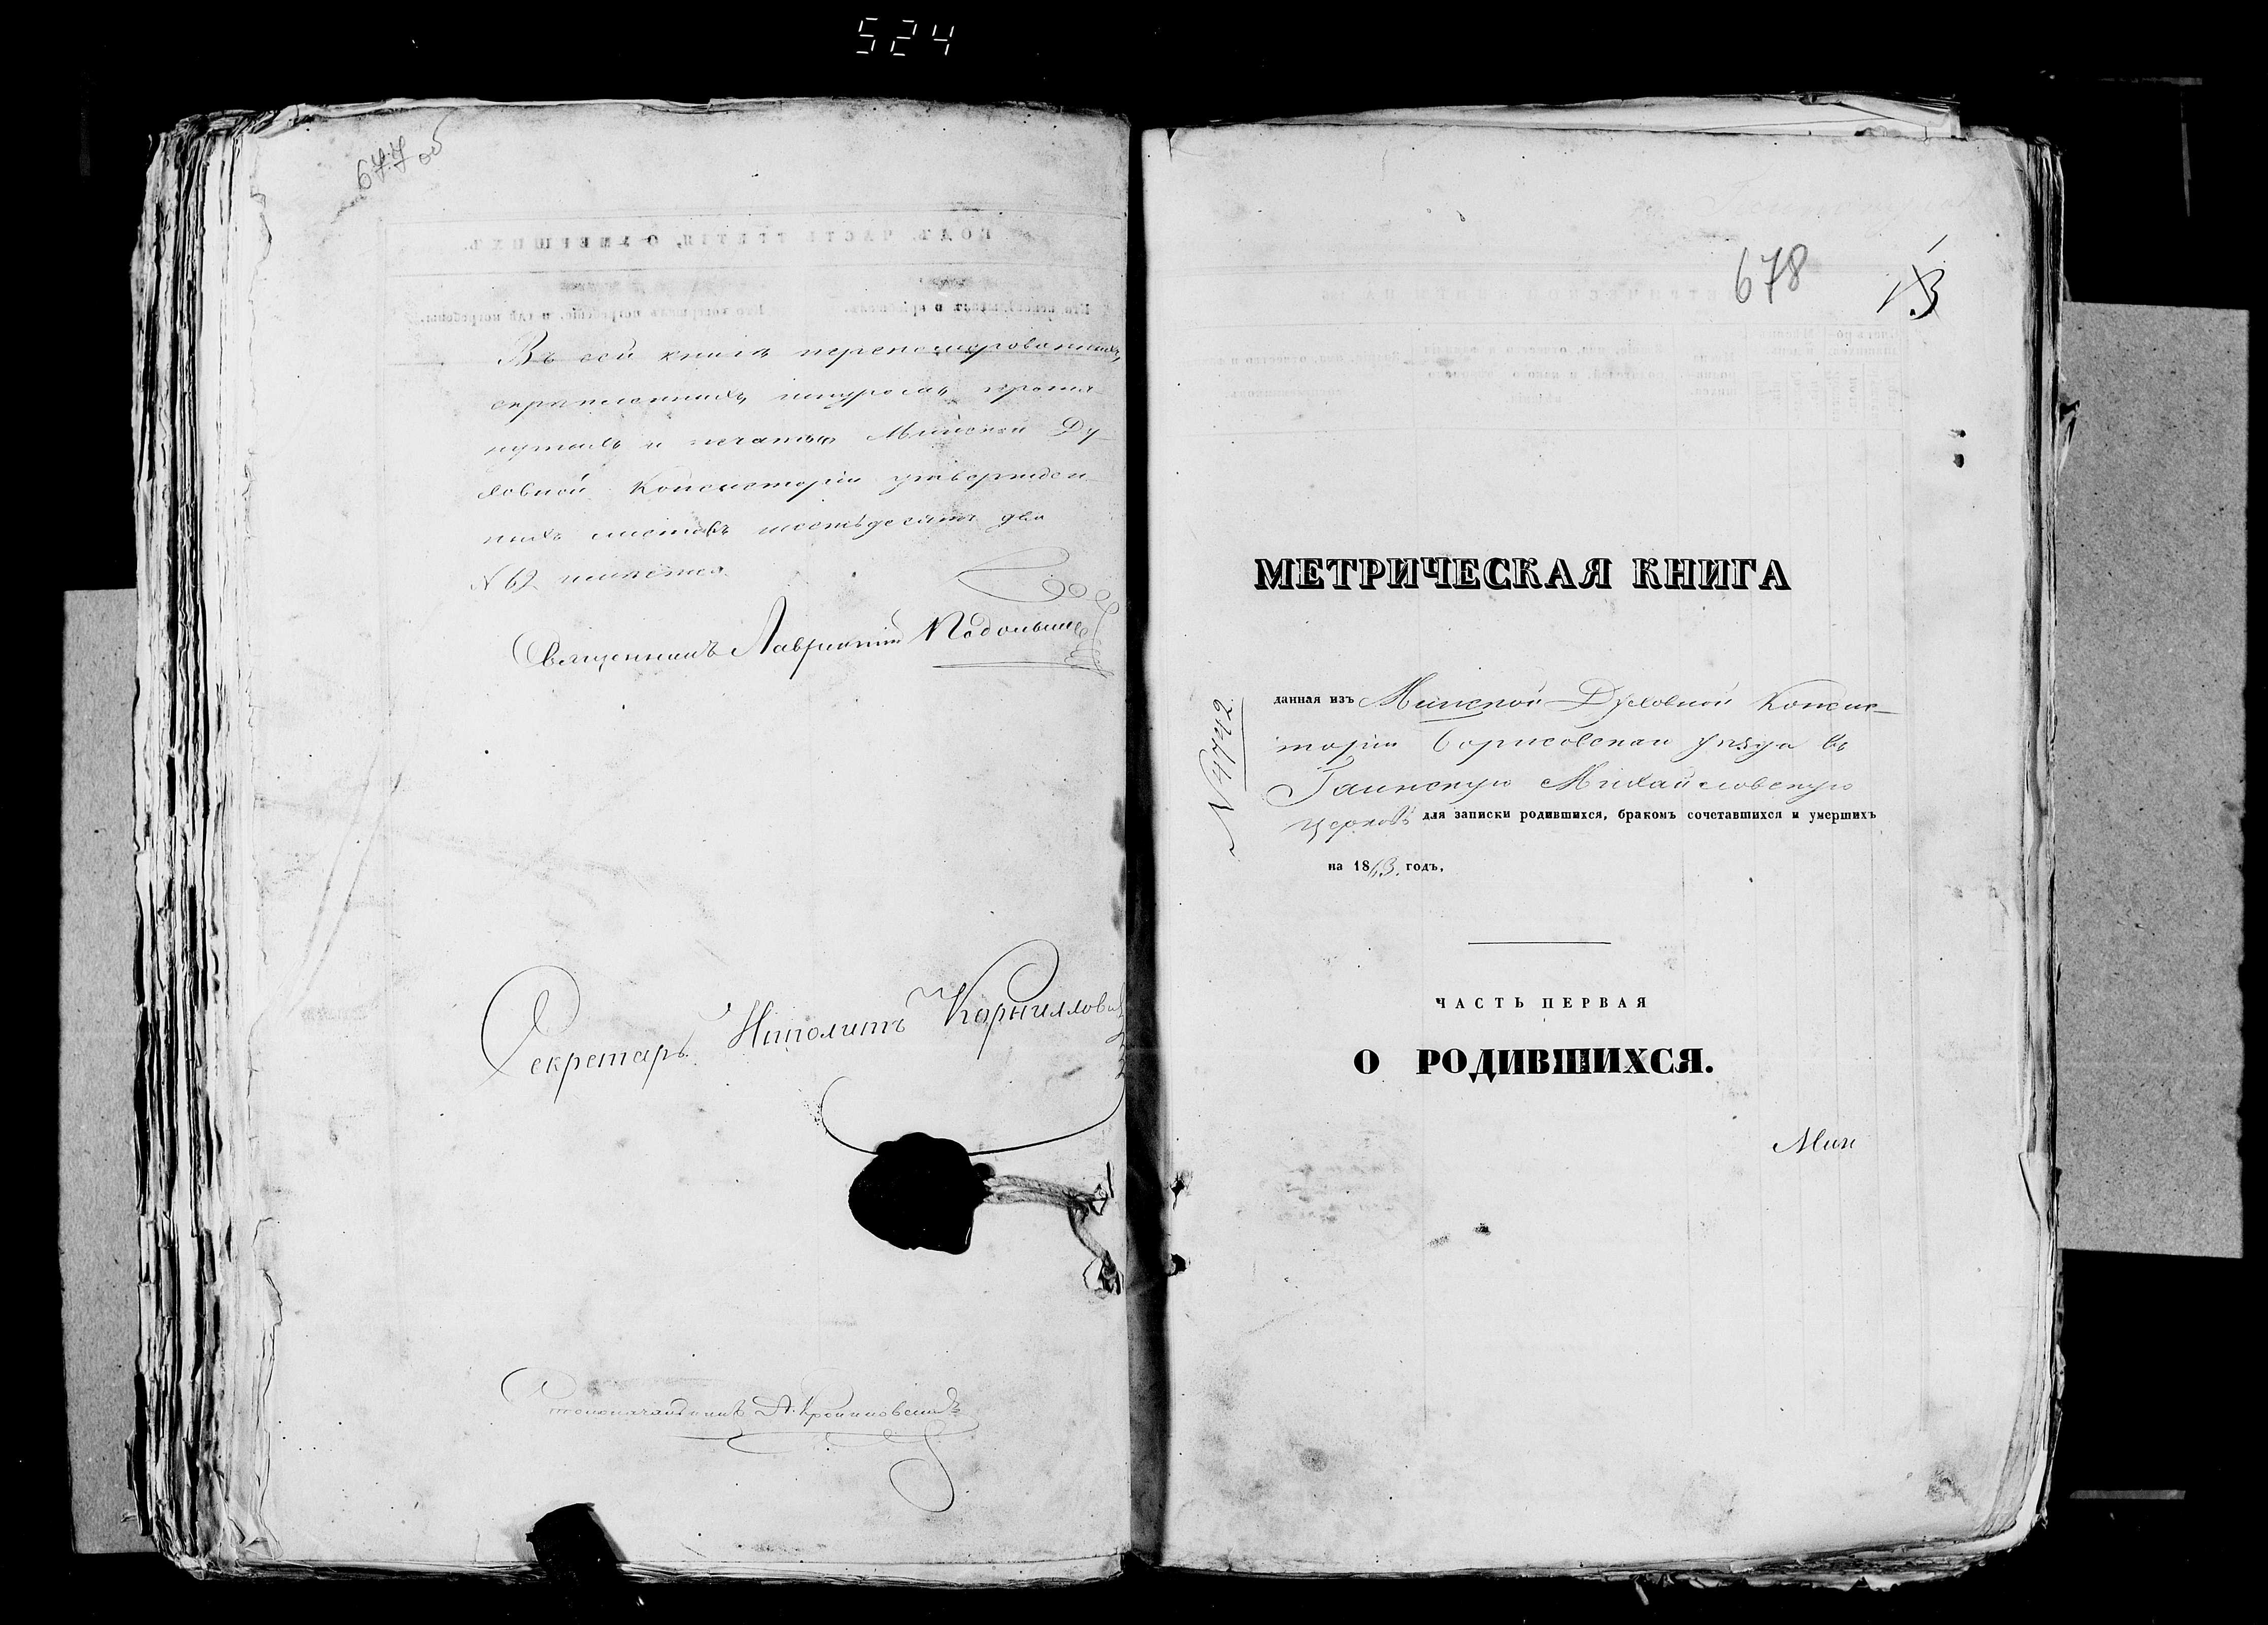 524
677 об
Въ сей книгѣ перенумерованныхъ,
скрѣпленныхъ шнуромъ протя-
нутыхъ и печатью Минской Ду-
ховной Консисторіи утвержден-
ныхъ листовъ шестьдесятъ два
№ 62 имѣется.
Священникъ Лаврентій
Секретарь Иполитъ Корниллович
Столоначальникъ А.
678
13
МЕТРИЧЕСКАЯ КНИГА
№ 4742
данная изъ Минской Духовной Консис-
торіи Борисовскаго уѣзда въ
Гаинскую Михайловскую
церковь для записки родившихся, бракомъ сочетавшихся и умершихъ
на 1863. годъ,
ЧАСТЬ ПЕРВАЯ
О РОДИВШИХСЯ.
Мин